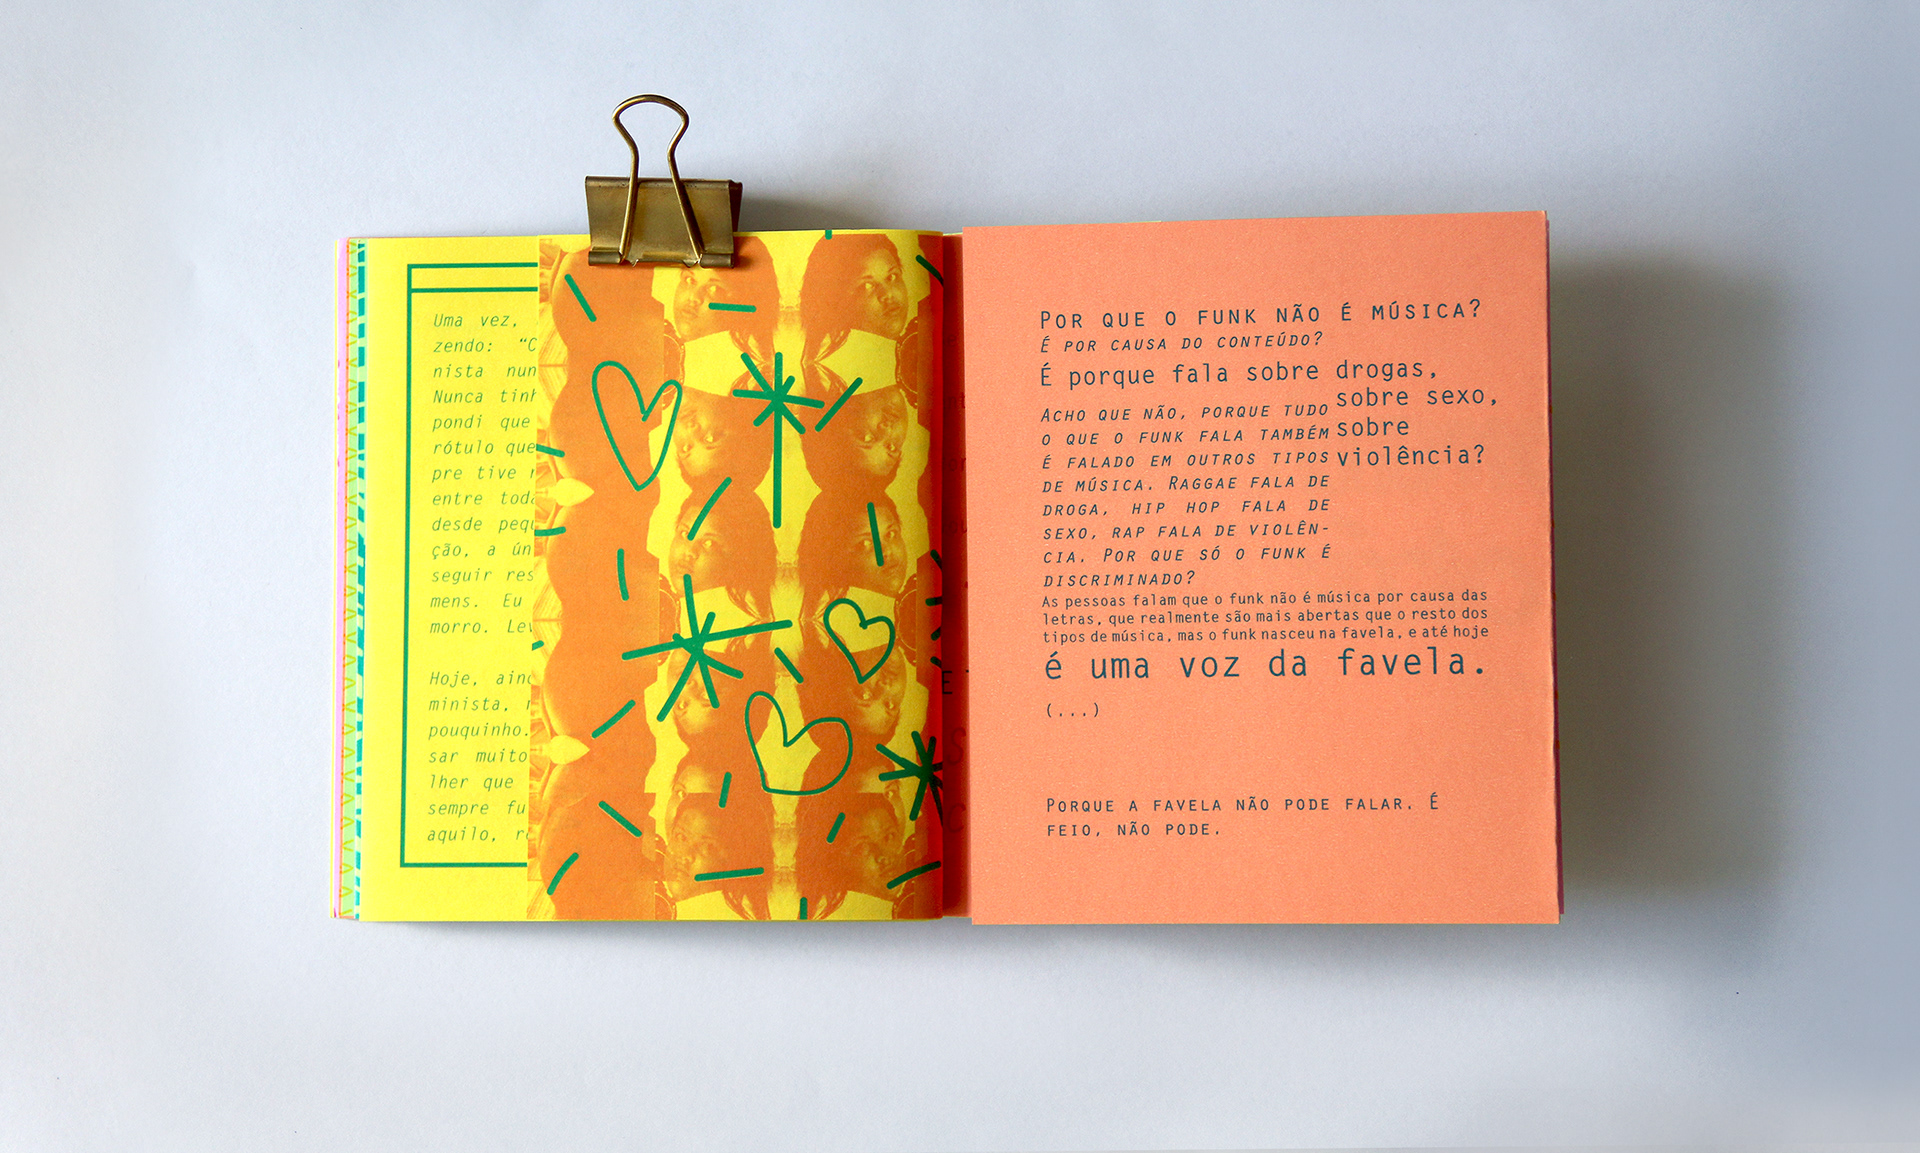 Uma vez,
zendo: “C
nista nun
Nunca tinh
pondi que
rótulo que
pre tive
entre toda
desde pequ
ção, a ún
seguir res
mens. Eu
morro. Lev
Hoje, aind
minista,
pouquinho.
sar muito
lher que
sempre fu
aquilo,
POR QUE O FUNK NÃO É MÚSICA?
É POR CAUSA DO CONTEÚDO?
É porque fala sobre drogas,
sobre sexo,
sobre
violência?
ACHO QUE NÃO, PORQUE TUDO
O QUE O FUNK FALA TAMBÉM
É FALADO EM OUTROS TIPOS
DE MÚSICA. RAGGAE FALA DE
DROGA, HIP HOP FALA DE
SEXO, RAP FALA DE VIOLÊN-
CIA. POR QUE SÓ O FUNK É
DISCRIMINADO?
As pessoas falam que o funk não é música por causa das
letras, que realmente são mais abertas que o resto dos
tipos de música, mas o funk nasceu na favela, e até hoje
é uma voz da favela.
(...)
PORQUE A FAVELA NÃO PODE FALAR. É
FEIO, NÃO PODE.